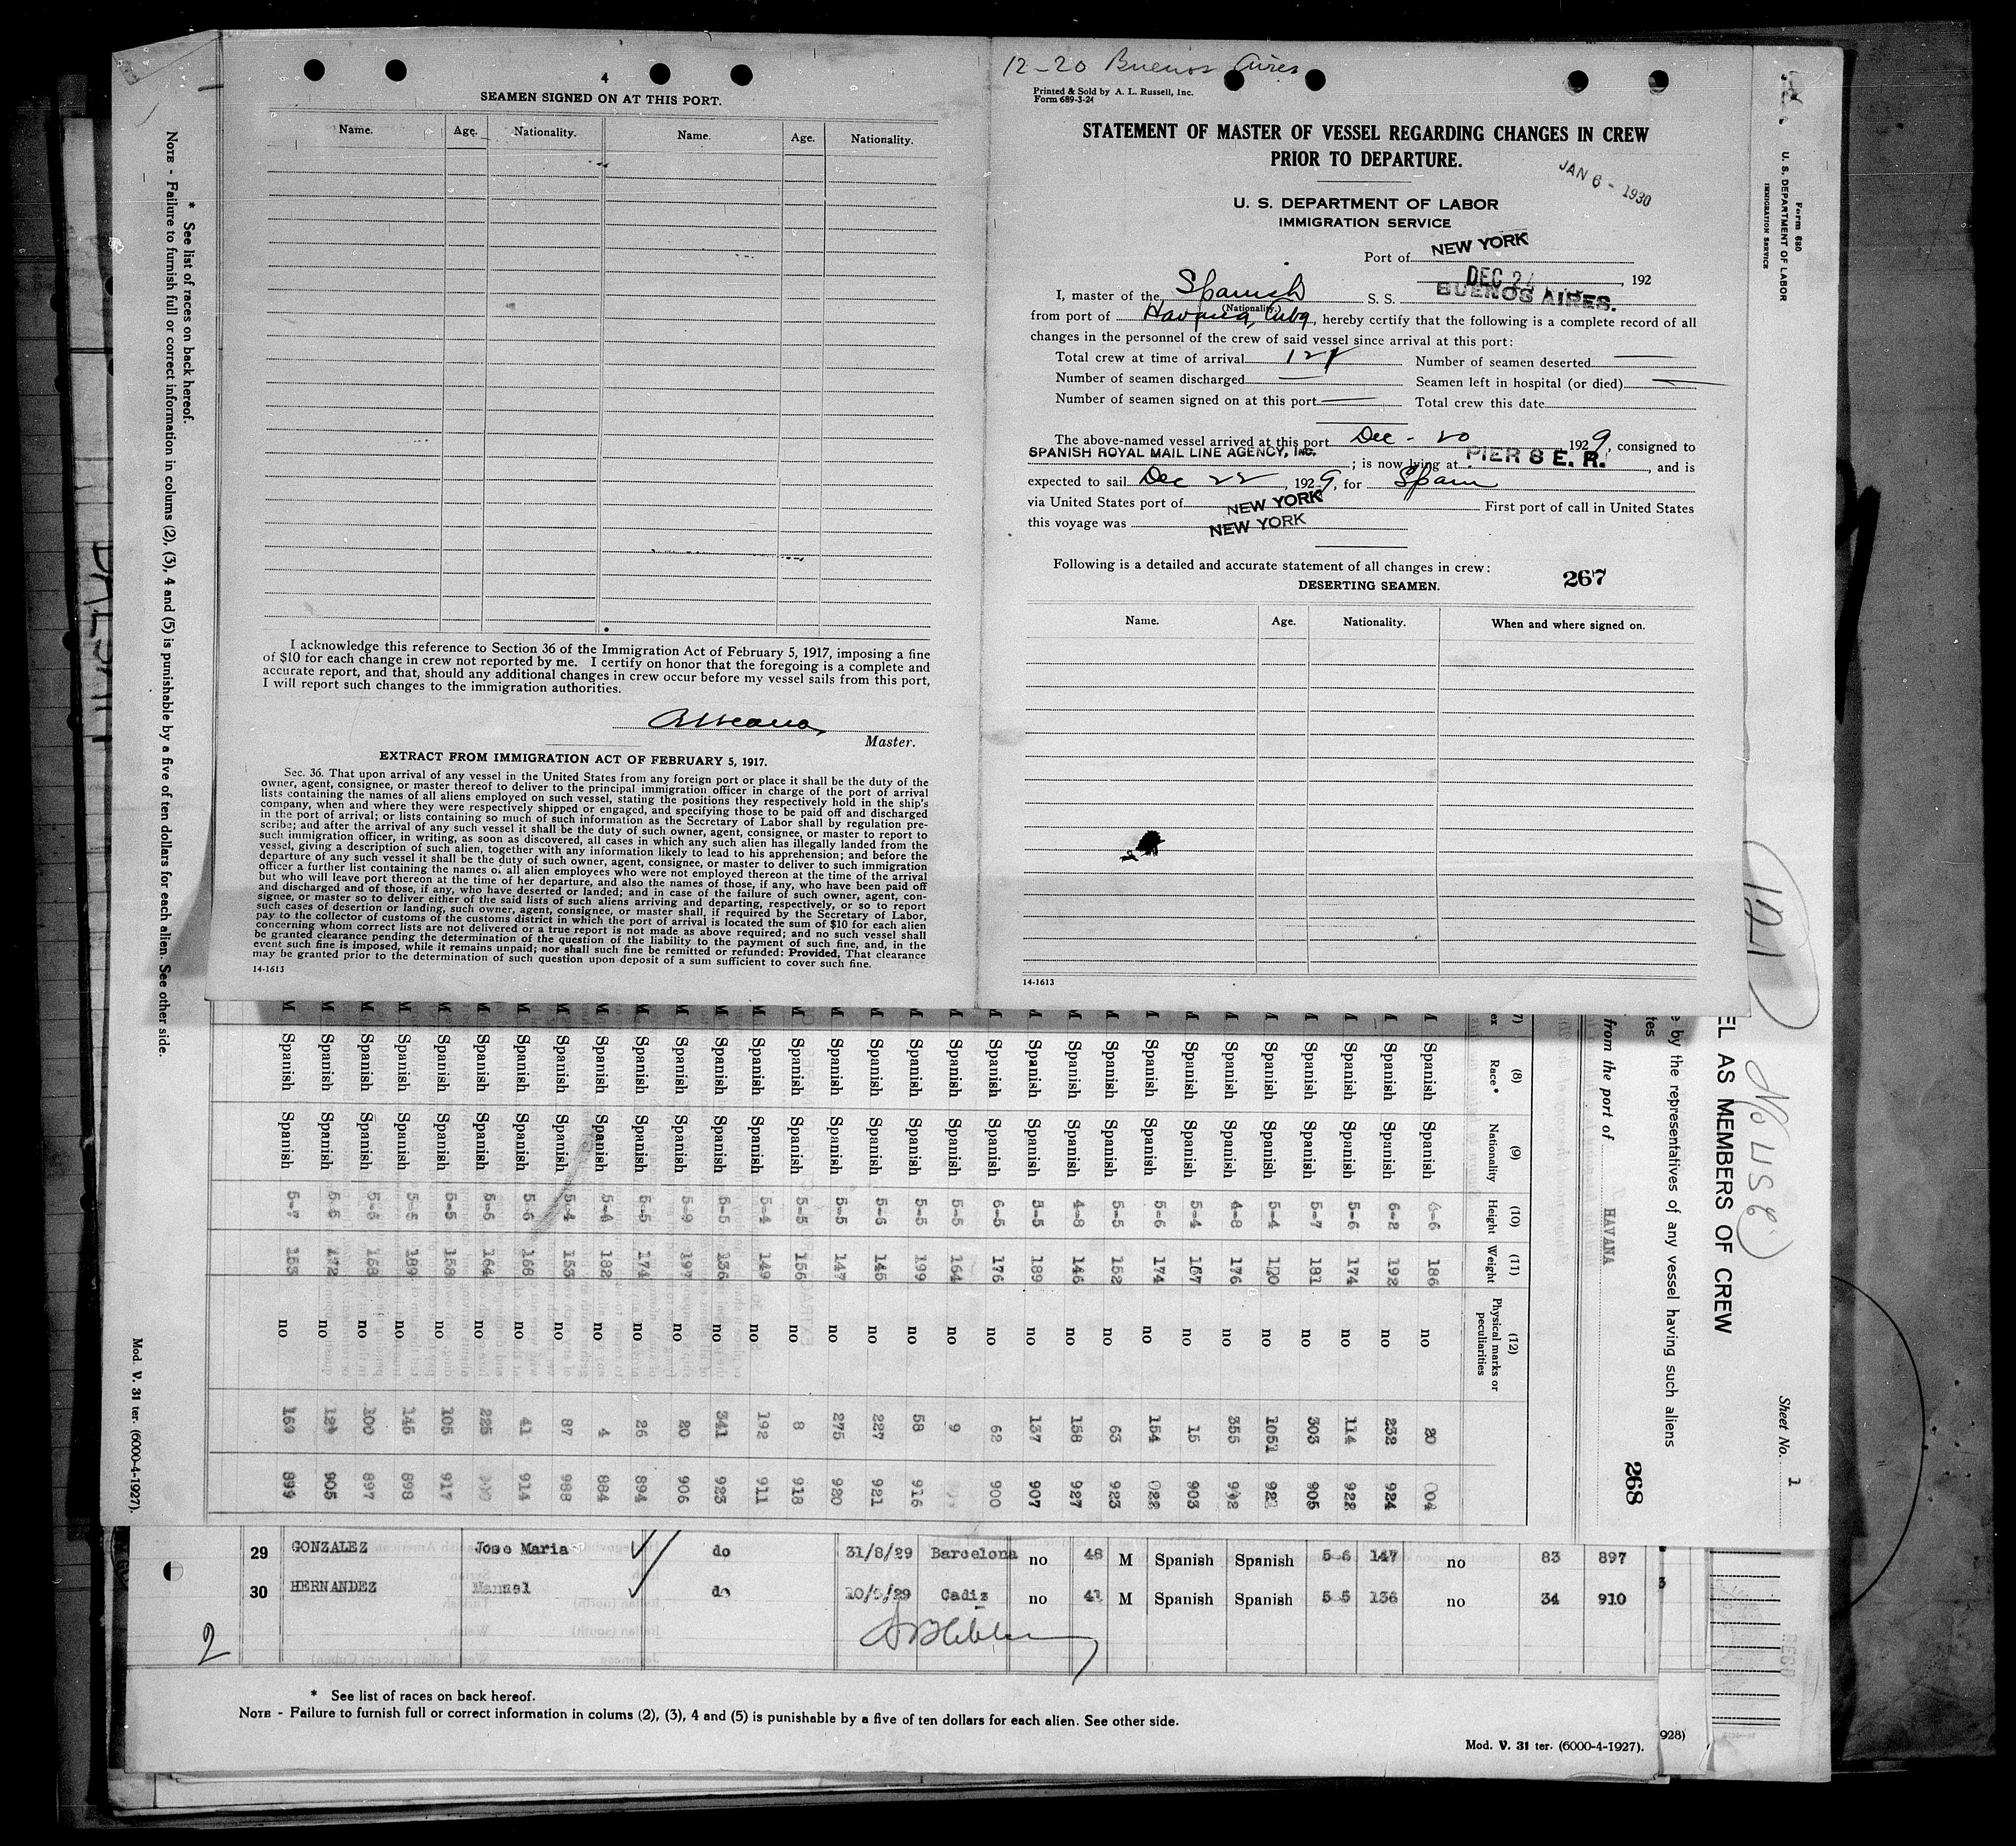 4
SEAMEN SIGNED ON AT THIS PORT.
Name. Age. Nationality. Name. Age. Nationality.
I acknowledge this reference to Section 36 of the Immigration Act of February 5, 1917, imposing a fine
of $10 for each change in crew not reported by me. I certify on honor that the foregoing is a complete and
accurate report, and that, should any additional changes in crew occur before my vessel sails from this port,
I will report such changes to the immigration authorities.
Master.
EXTRACT FROM IMMIGRATION ACT OF FEBRUARY 5, 1917.
Sec. 36. That upon arrival of any vessel in the United States from any foreign port or place it shall be the duty of the
owner, agent, consignee, or master thereof to deliver to the principal immigration officer in charge of the port of arrival
lists containing the names of all aliens employed on such vessel, stating the positions they respectively hold in the ship's
company, when and where they were respectively shipped or engaged, and specifying those to be paid off and discharged
in the port of arrival; or lists containing so much of such information as the Secretary of Labor shall by regulation pre-
scribe; and after the arrival of any such vessel it shall be the duty of such owner, agent, consignee, or master to report to
such immigration officer, in writing, as soon as discovered, all cases in which any such alien has illegally landed from the
vessel, giving a description of such alien, together with any information likely to lead to his apprehension; and before the
departure of any such vessel it shall be the duty of such owner, agent, consignee, or master to deliver to such immigration
officer a further list containing the names of all alien employees who were not employed thereon at the time of the arrival
but who will leave port thereon at the time of her departure, and also the names of those, if any, who have been paid off
and discharged and of those, if any, who have deserted or landed; and in case of the failure of such owner, agent, con-
signee, or master so to deliver either of the said lists of such aliens arriving and departing, respectively, or so to report
such cases of desertion or landing, such owner, agent, consignee, or master shall, if required by the Secretary of Labor,
pay to the collector of customs of the customs district in which the port of arrival is located the sum of $10 for each alien
concerning whom correct lists are not delivered or a true report is not made as above required; and no such vessel shall
be granted clearance pending the determination of the question of the liability to the payment of such fine, and, in the
event such fine is imposed, while it remains unpaid; nor shall such fine be remitted or refunded: Provided, That clearance
may be granted prior to the determination of such question upon deposit of a sum sufficient to cover such fine.
14-1613
12-20 Buenos Aires
Printed & Sold by A. L. Russell, Inc.
Form 689-3-24
STATEMENT OF MASTER OF VESSEL REGARDING CHANGES IN CREW
PRIOR TO DEPARTURE.
JAN 6 - 1930
U. S. DEPARTMENT OF LABOR
IMMIGRATION SERVICE
Port of NEW YORK
DEC 2 , 192
I, master of the Spanish S. S. BUENOS AIRES.
(Nationality)
from port of Havana, Cuba, hereby certify that the following is a complete record of all
changes in the personnel of the crew of said vessel since arrival at this port:
Total crew at time of arrival Number of seamen deserted —
Number of seamen discharged — Seamen left in hospital (or died) —
Number of seamen signed on at this port — Total crew this date
The above-named vessel arrived at this port Dec - 20, 1929, consigned to
SPANISH ROYAL MAIL LINE AGENCY, INC. ; is now lying at PIER 8 E. R., and is
expected to sail Dec 22, 1929, for Spain
via United States port of NEW YORK First port of call in United States
this voyage was NEW YORK
Following is a detailed and accurate statement of all changes in crew:
267
DESERTING SEAMEN.
Name. Age. Nationality. When and where signed on.
14-1613
Form 680
U. S. DEPARTMENT OF LABOR
IMMIGRATION SERVICE
121
No US C
Sheet No. 1
EL AS MEMBERS OF CREW
e by the representatives of any vessel having such aliens
tes
268
from the port of HAVANA
(7) ex (8) Race* (9) Nationality (10) Height (11) Weight (12) Physical marks or peculiarities
M Spanish Spanish 186 no 20
M Spanish Spanish 6-2 192 no 232 924
M Spanish Spanish 5-6 174 no 114 922
M Spanish Spanish 5-7 181 no 303 905
M Spanish Spanish 5-4 no 1051
M Spanish Spanish 4-8 176 no 355
M Spanish Spanish 5-4 167 no 15 903
M Spanish Spanish 5-6 174 no 154
M Spanish Spanish 5-5 152 no 63 923
M Spanish Spanish 4-8 146 no 158 927
M Spanish Spanish 5-5 189 no 137 907
M Spanish Spanish 6-5 176 no 62 900
M Spanish Spanish 5-5 164 no 9
M Spanish Spanish 5-5 199 no 58 916
M Spanish Spanish 5-6 145 no 227 921
M Spanish Spanish 5-5 147 no 275 920
M Spanish Spanish 5-5 156 no 8 918
M Spanish Spanish 5-4 149 no 192 911
M Spanish Spanish 5-5 136 no 341 923
M Spanish Spanish 5-9 197 no 20 906
M Spanish Spanish 5-5 174 no 26 894
M Spanish Spanish 5-4 182 no 4 884
M Spanish Spanish 5-4 153 no 87 988
M Spanish Spanish 5-6 168 no 41 914
M Spanish Spanish 5-6 164 no 225
M Spanish Spanish 5-5 158 no 105 917
M Spanish Spanish 5-5 189 no 145 898
M Spanish Spanish 5-6 168 no 100 897
M Spanish Spanish 5-6 172 no 905
M Spanish Spanish 5-7 153 no 899
* See list of races on back hereof.
NOTE - Failure to furnish full or correct information in colums (2), (3), 4 and (5) is punishable by a five of ten dollars for each alien. See other side.
Mod. V. 31 ter. (6000-4-1927).
29 GONZALEZ Jose Maria do 31/8/29 Barcelona no 48 M Spanish Spanish 5-6 147 no 83 897
30 HERNANDEZ Manuel do Cadiz no 41 M Spanish Spanish 5 5 136 no 34 910
2
* See list of races on back hereof.
NOTE - Failure to furnish full or correct information in colums (2), (3), 4 and (5) is punishable by a five of ten dollars for each alien. See other side.
Mod. V. 31 ter. (6000-4-1927).
928)